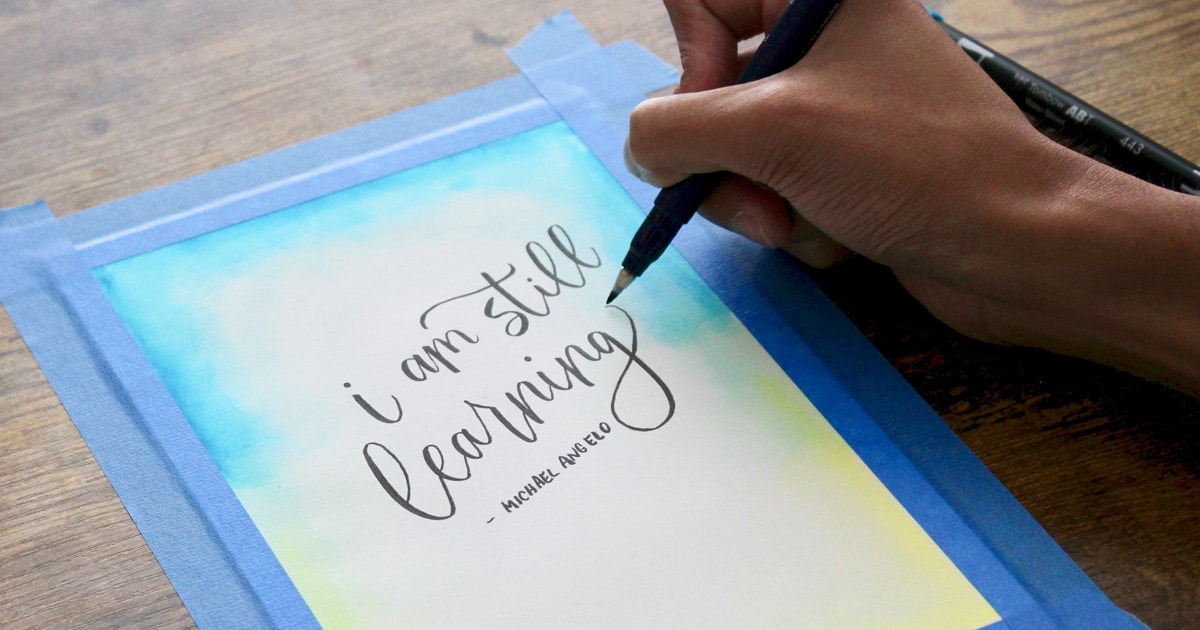 i am still
learning
- MICHAEL ANGELO
ABT
443